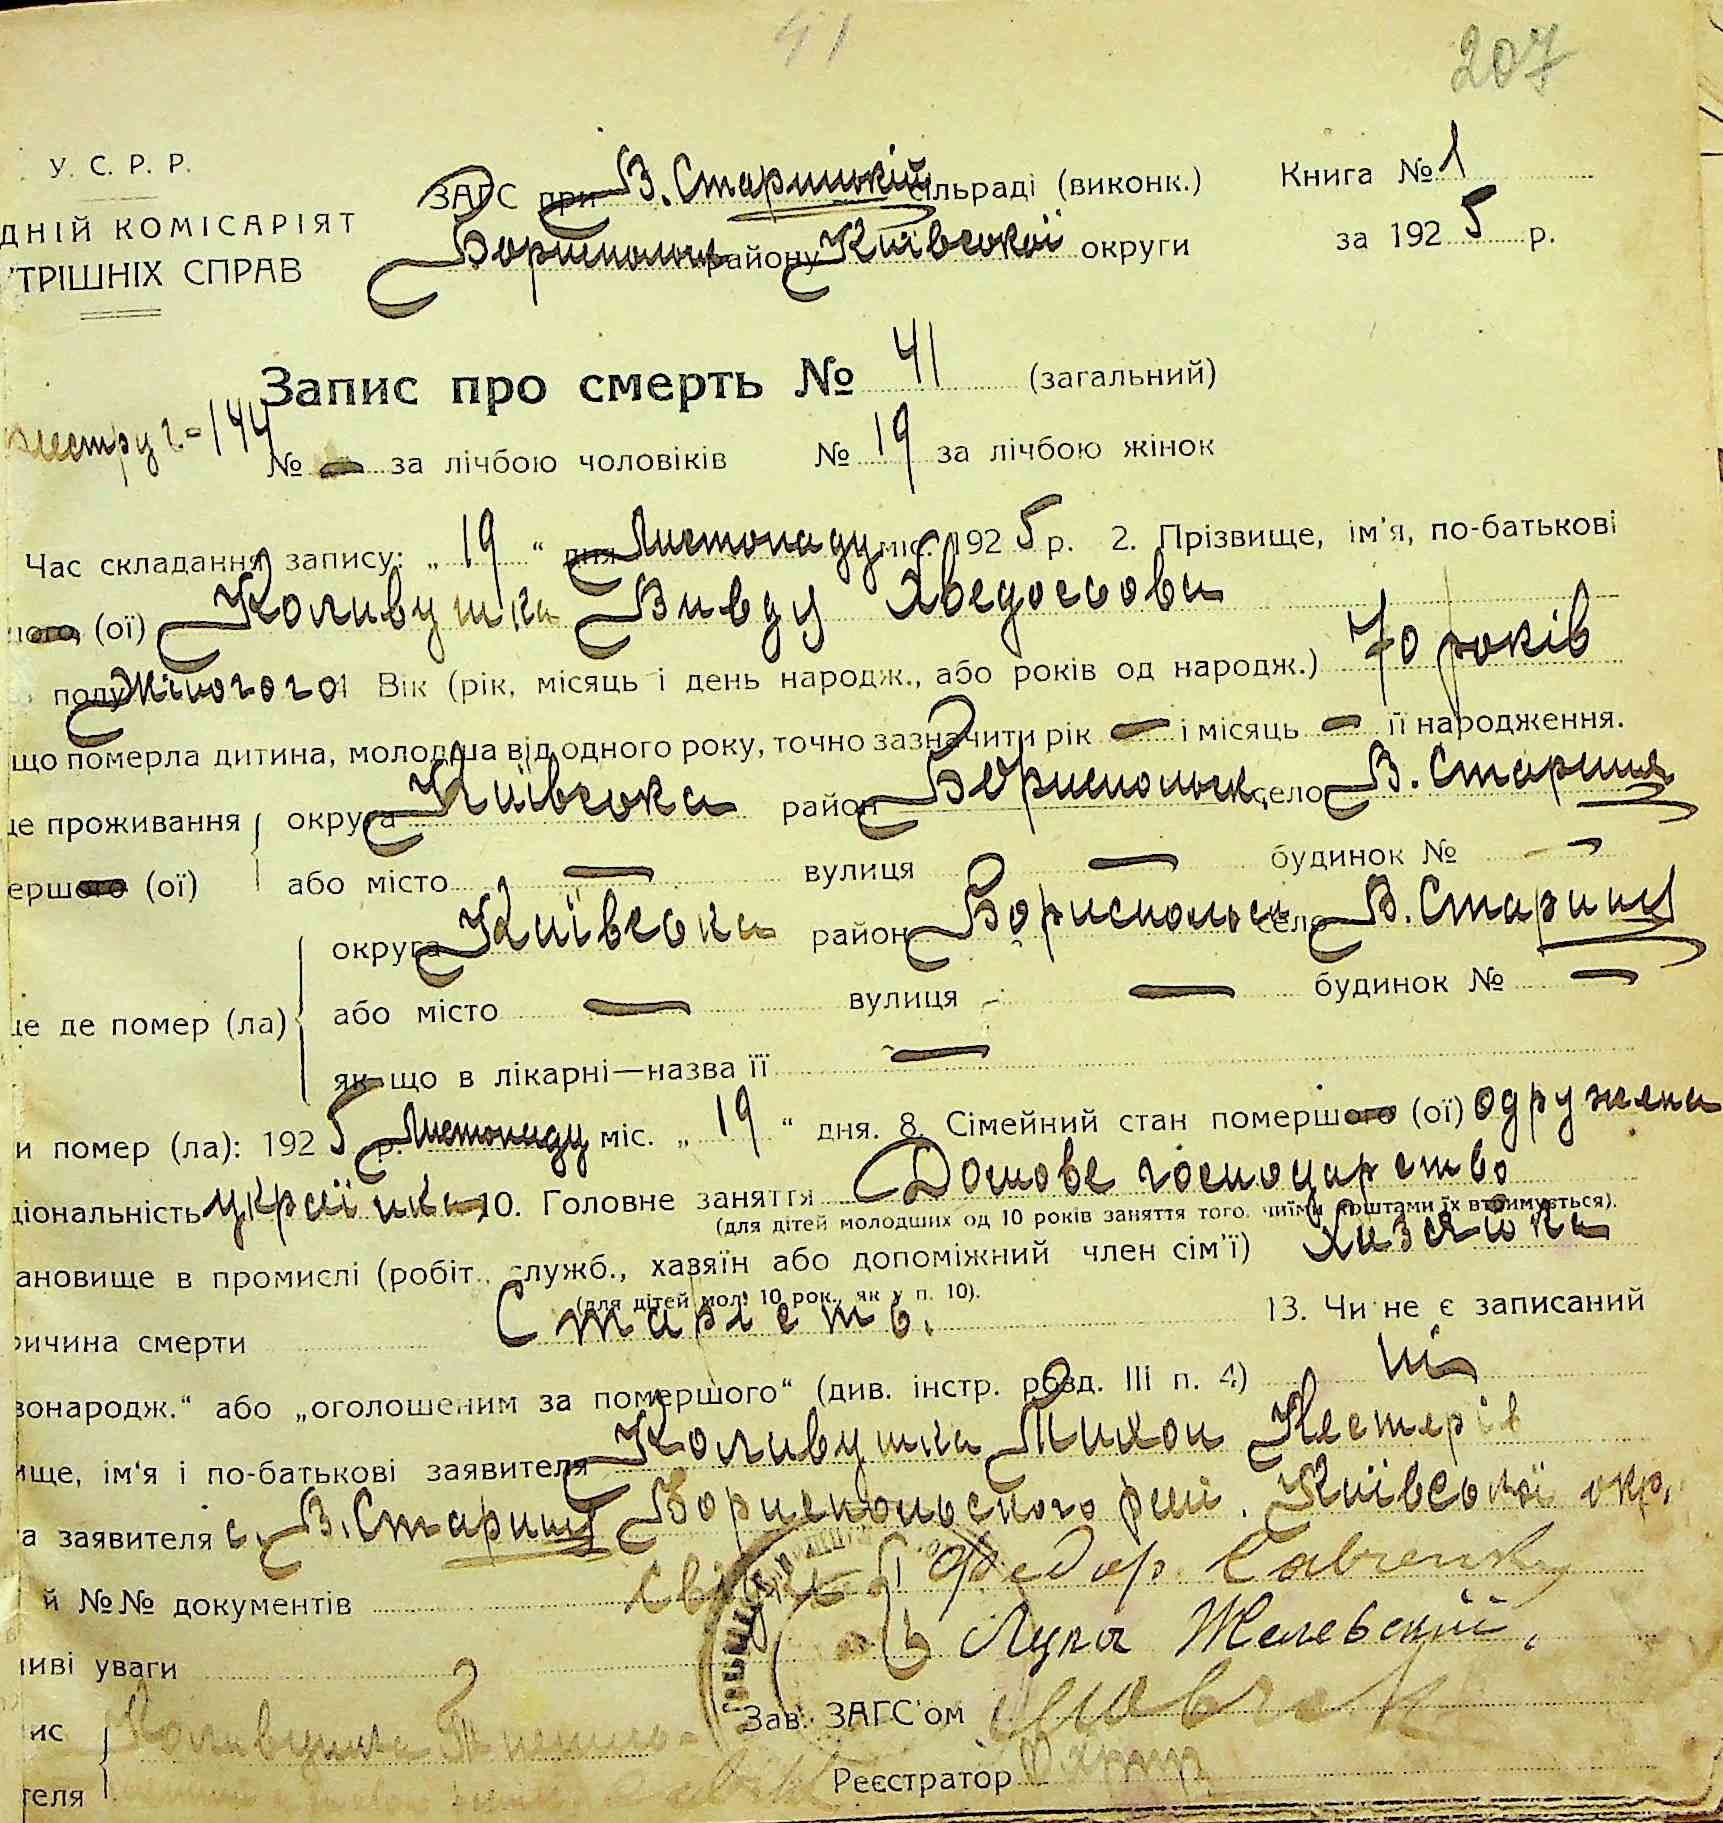 41
207
У. С. Р. Р.
ДНІЙ КОМІСАРІЯТ
ТРІШНІХ СПРАВ
ЗАГС при В. Старицькій сільраді (виконк.)
району Київської округи
Книга № 1
за 1925 р.
Запис про смерть № 41 (загальний)
144
№ — за лічбою чоловіків № 19 за лічбою жінок
Час складання запису: „19“ дня Листопаду міс. 1925 р. 2. Прізвище, ім'я, по-батькові
ого (ої) Коливушка Хведосьова
полу Жіночого Вік (рік, місяць і день народж., або років од народж.) 70 років
що померла дитина, молодша від одного року, точно зазначити рік — і місяць — її народження.
це проживання округа Київська район Бориспольск село В. Стариця
ершого (ої) або місто — вулиця — будинок № —
округа Київська район Бориспольск село В. Стариця
це де помер (ла) або місто — вулиця — будинок № —
як що в лікарні—назва її —
и помер (ла): 1925 р. Листопаду міс. „19“ дня. 8. Сімейний стан помершого (ої) одружена
ціональність українка 10. Головне заняття Домове господарство
(для дітей молодших од 10 років заняття того, чиїми коштами їх втримується).
ановище в промислі (робіт., служб., хазяїн або допоміжний член сім'ї) Хазяйка
(для дітей мол. 10 рок., як у п. 10).
ричина смерти Старість. 13. Чи не є записаний
вонародж.“ або „оголошеним за помершого“ (див. інстр. розд. III п. 4) ні
ище, ім'я і по-батькові заявителя Коливушка Тихон Нестерів
а заявителя с. В. Стариця Бориспольського рай. Київської окр.
й №№ документів Федор Савченко
иві уваги Лука
Зав. ЗАГС'ом
ис Коливушка
теля Реєстратор